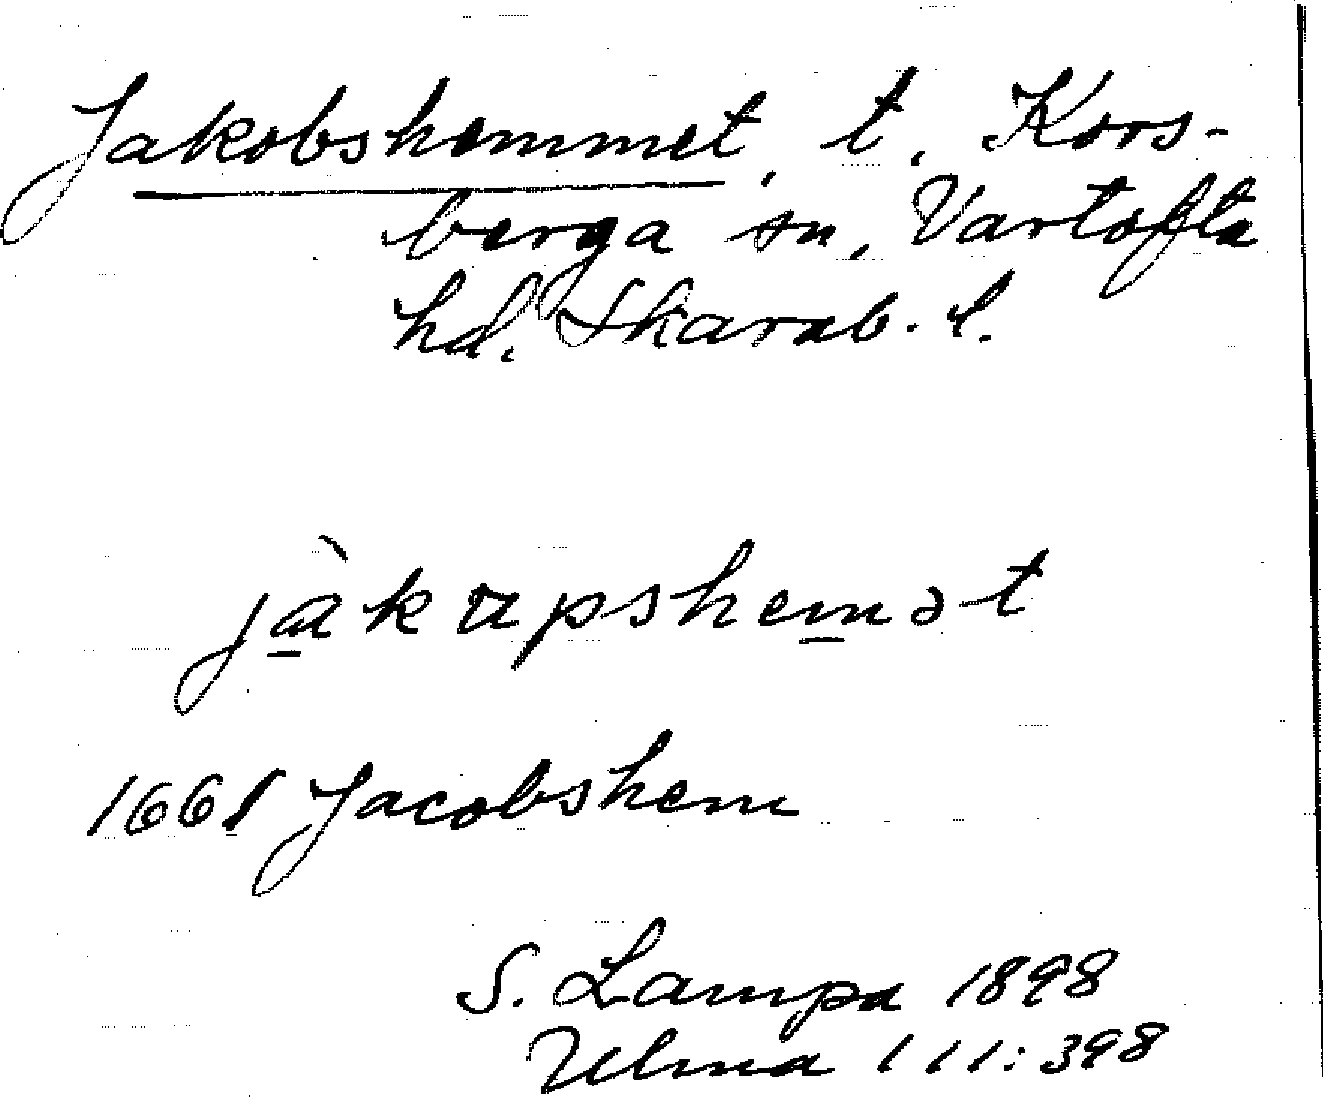 Jakobshemmet, t. Kors-
berga sn, Vartofta
hd. Skarab. l.
jàkupshemət
1661 Jacobshem
S. Lampa 1898
Ulma 111:398